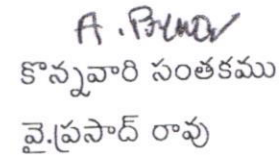 కొన్నవారి సంతకము
వై.ప్రసాద్ రావు